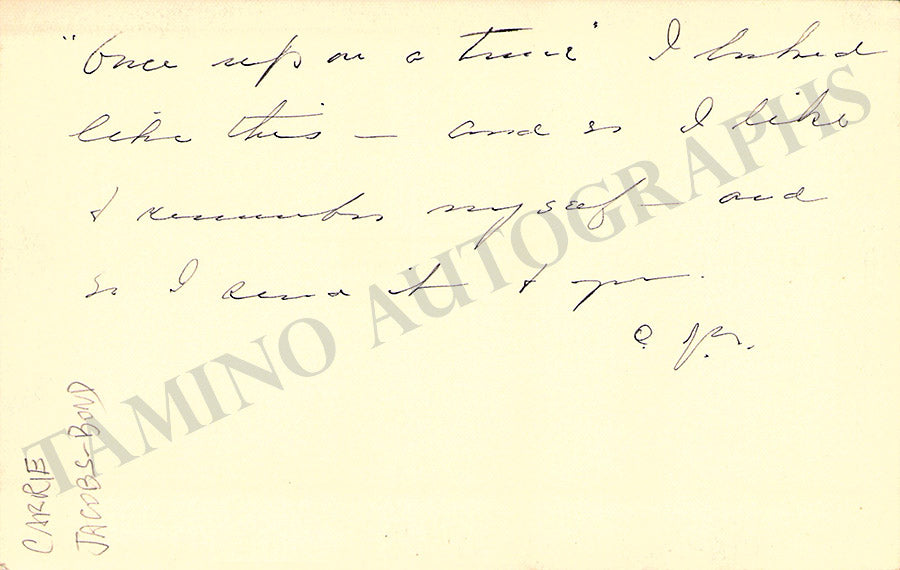 "Once upon a time" I looked
like this — and so I like
to remember myself — and
so I send it to you.
C. J. B.
CARRIE
JACOBS-BOND
TAMINO AUTOGRAPHS